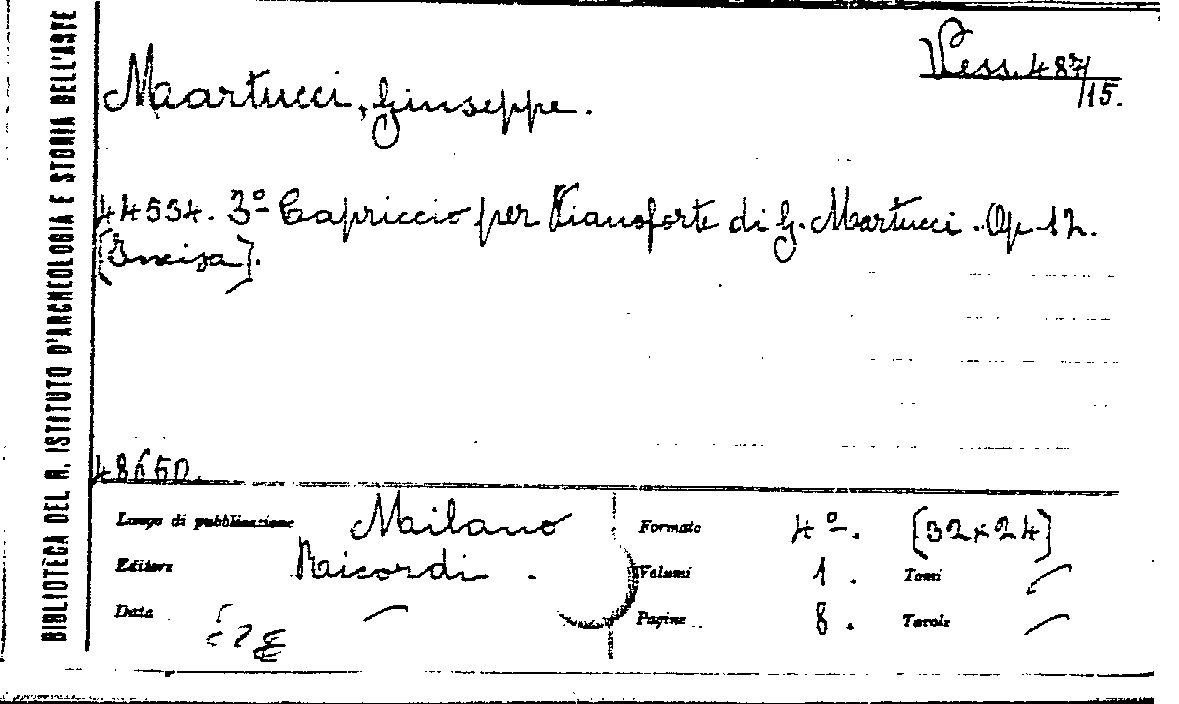 BIBLIOTECA DEL R. ISTITUTO D'ARCHEOLOGIA E STORIA DELL'ARTE
Vess. 487/15.
Martucci, Giuseppe.
44534. 3º Capriccio per Pianoforte di G. Martucci. Op. 12.
[Incisa].
48660.
Luogo di pubblicazione Milano
Editore Ricordi.
Data
Formato 4º. [32x24]
Volumi 1. Tomi
Pagine 8. Tavole